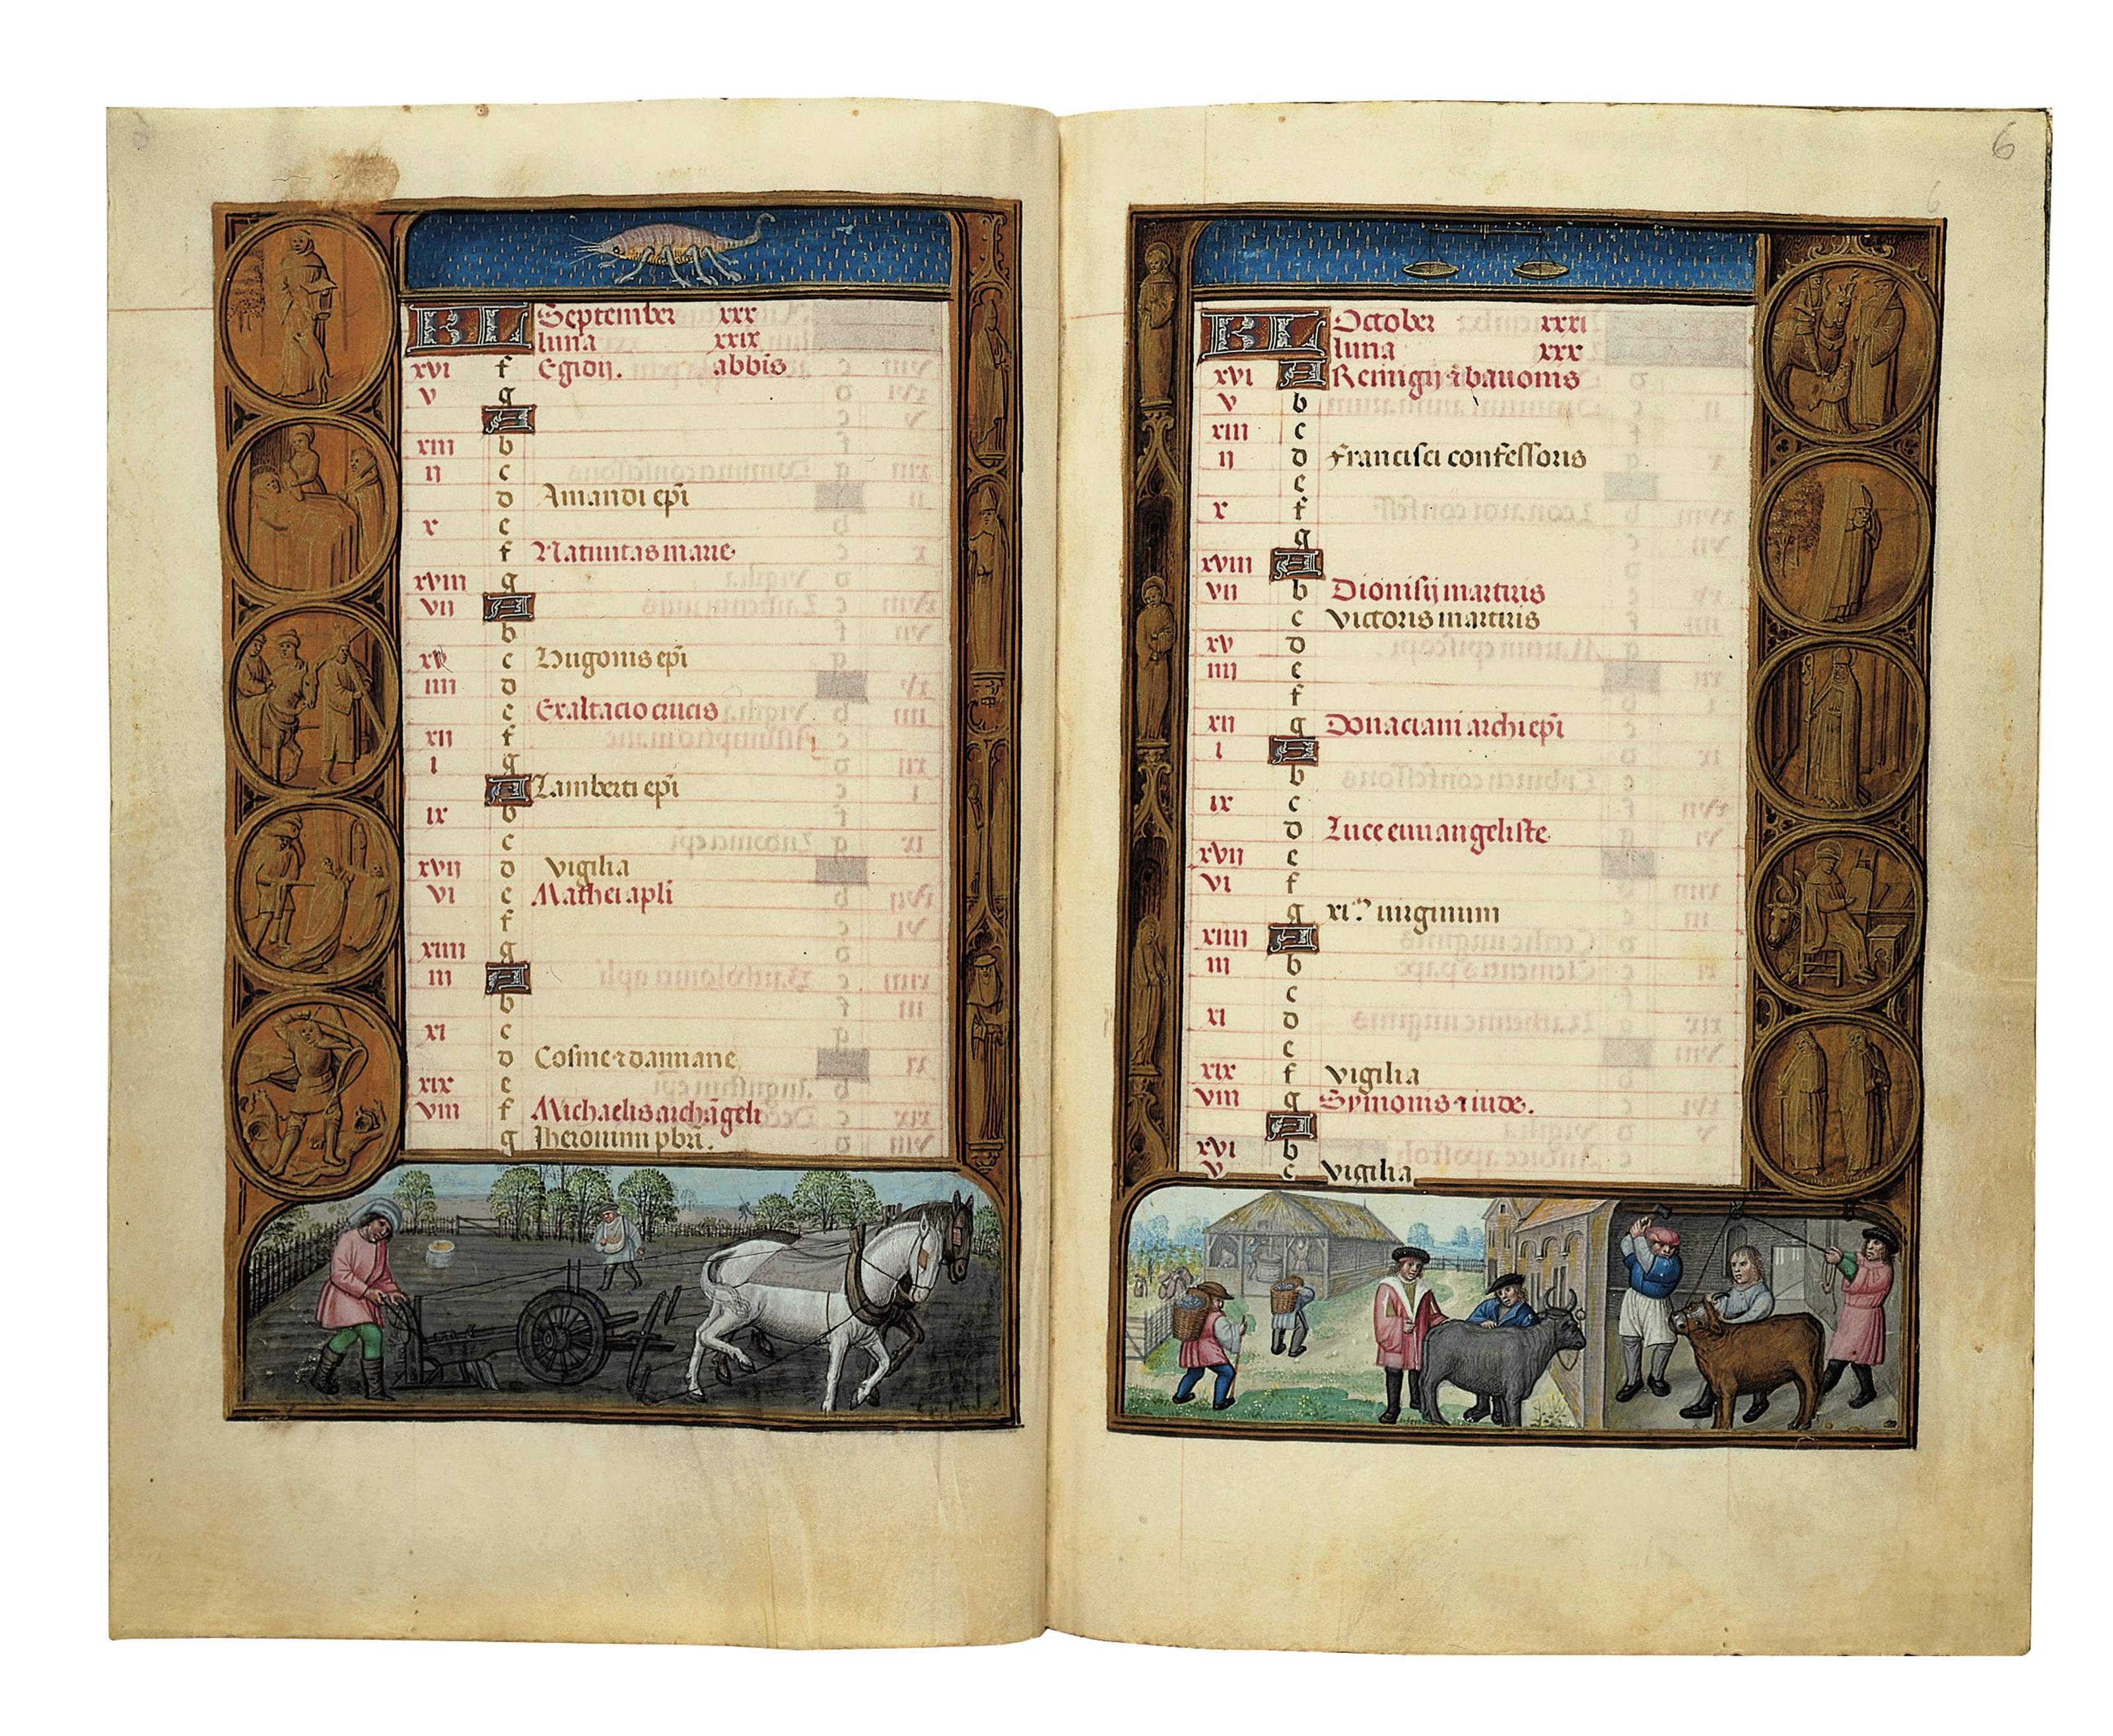 KL September xxx
luna xxix
xvi f Egidij. abbis
v g
A
xiii b
ii c
d Amandi epi
x e
f Natiuitas marie
xviii g
vii A
b
xv c Hugonis epi
iiii d
e Exaltacio crucis
xii f
i g
A Lamberti epi
ix b
c
xvii d vigilia
vi e Mathei apli
f
xiiii g
iii A
b
xi c
d Cosme ⁊ damiane
xix e
viii f Michaelis archãgeli
g Iheronimi pbri.
6
KL October xxxi
luna xxx
xvi A Remigij ⁊ bauonis
v b
xiii c
ii d francisci confessoris
e
x f
g
xviii A
vii b Dionisij martiris
c victoris martiris
xv d
iiii e
f
xii g Donaciani archiepi
i A
b
ix c
d Luce euuangeliste
xvii e
vi f
g xi.ᵐ uirginum
xiiii A
iii b
c
xi d
e
xix f vigilia
viii g Symonis ⁊ iude.
A
xvi b
v c vigilia